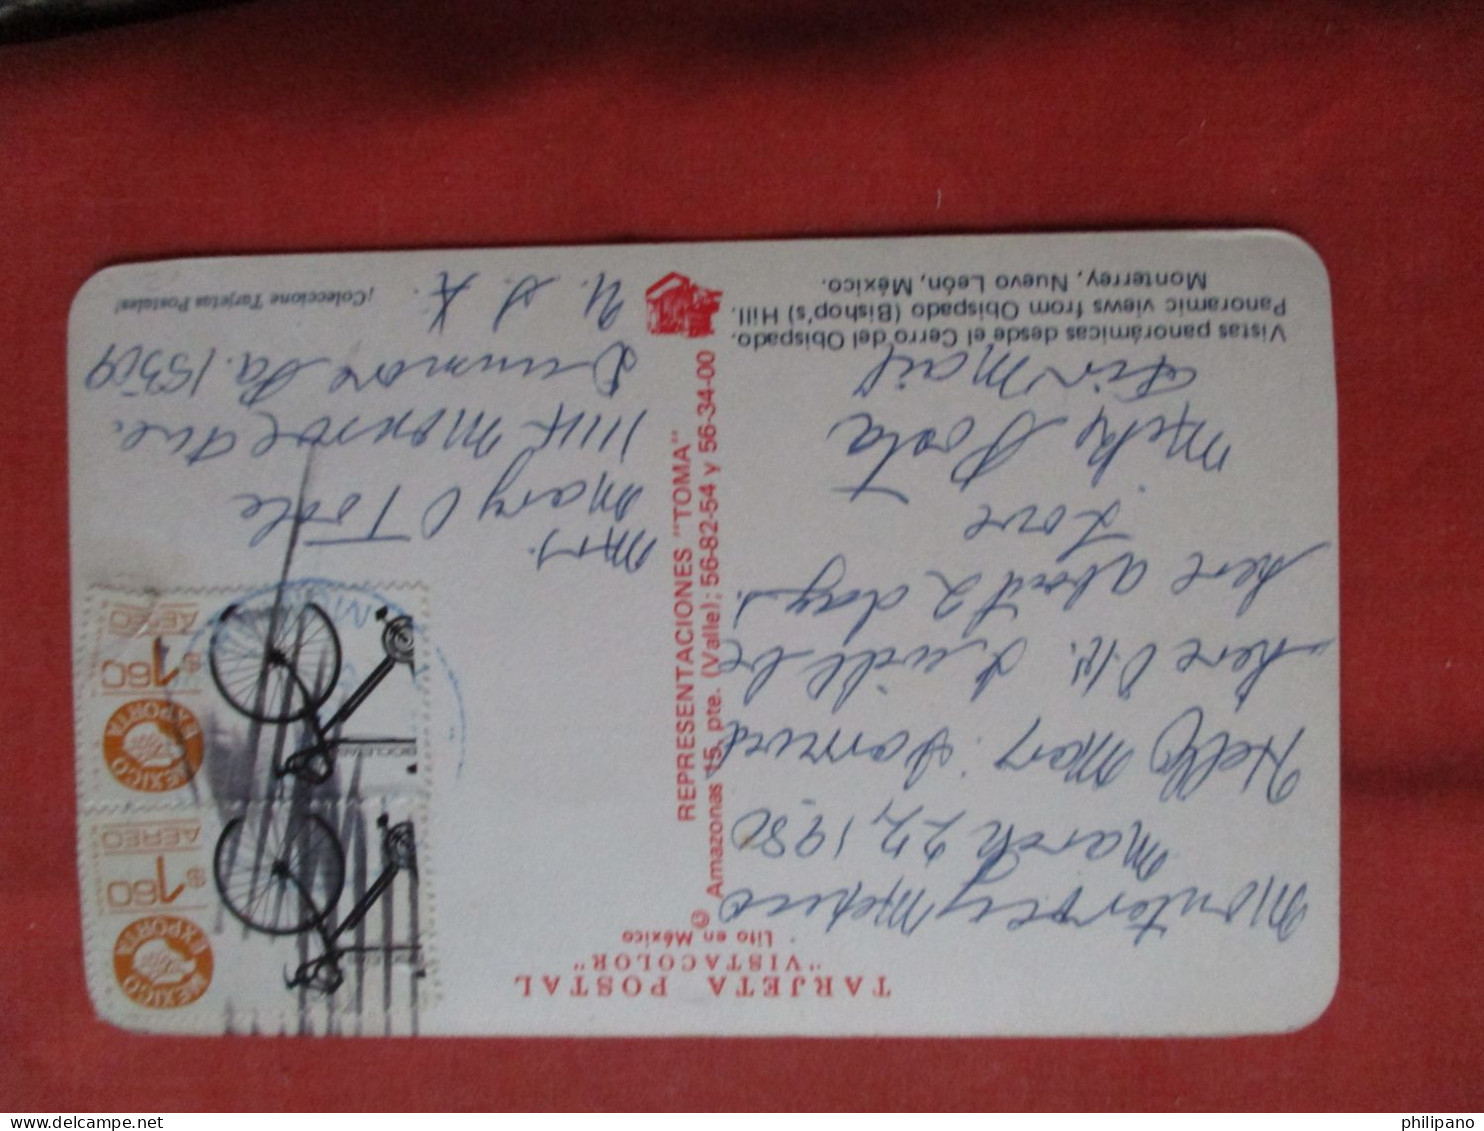 TARJETA POSTAL
"VISTACOLOR"
Lito en México
Monterrey Mexico
March 22, 1980
Hello Mary. Arrived
here O.K. I will be
here about 2 days.
Love
Mike
Air Mail
Vistas panorámicas desde el Cerro del Obispado.
Panoramic views from Obispado (Bishop's) Hill.
Monterrey, Nuevo León, México.
© REPRESENTACIONES "TOMA"
Amazonas 15, pte. (Valle); 56-82-54 y 56-34-00
MEXICO EXPORTA
$1.60
AEREO
BICICLETAS
MEXICO EXPORTA
$1.60
AEREO
BICICLETAS
Mrs.
Mary O Toole
Monroe Ave.
Dunmore Pa. 18509
U.S.A.
¡Coleccione Tarjetas Postales!
philipano